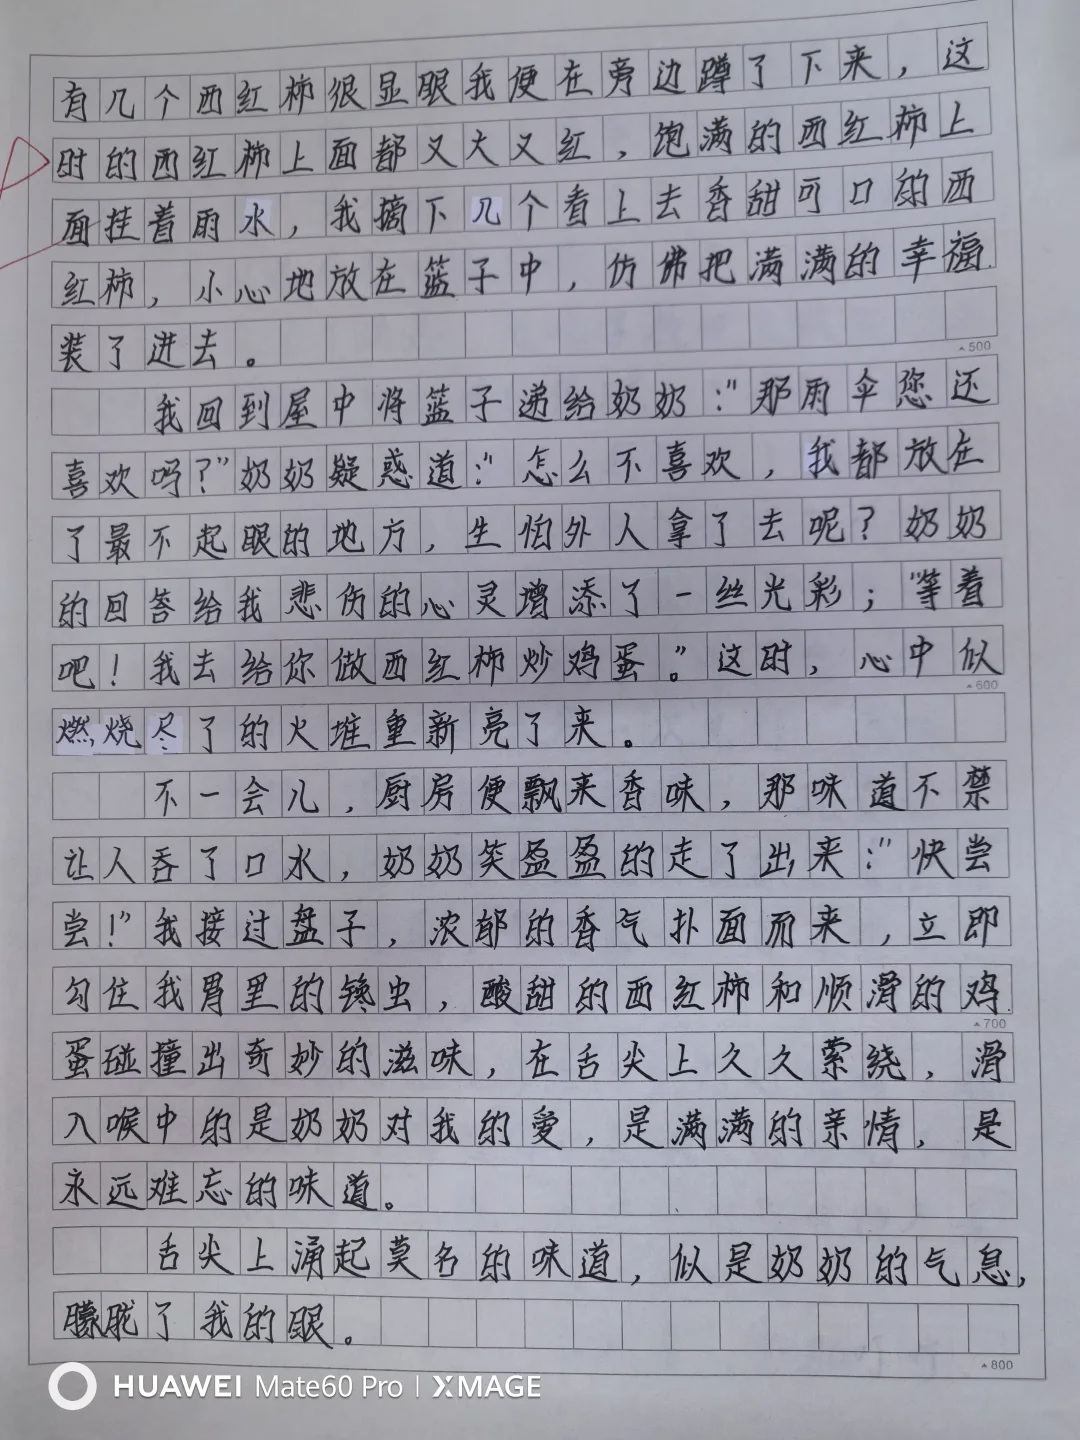 有几个西红柿很显眼我便在旁边蹲了下来，这
时的西红柿上面都又大又红，饱满的西红柿上
面挂着雨水，我摘下几个看上去香甜可口的西
红柿，小心地放在篮子中，仿佛把满满的幸福
装了进去。
▲500
我回到屋中将篮子递给奶奶：“那雨伞您还
喜欢吗？”奶奶疑惑道：“怎么不喜欢，我都放在
了最不起眼的地方，生怕外人拿了去呢？奶奶
的回答给我悲伤的心灵增添了一丝光彩；“等着
吧！我去给你做西红柿炒鸡蛋。”这时，心中似
▲600
燃烧尽了的火堆重新亮了来。
不一会儿，厨房便飘来香味，那味道不禁
让人吞了口水，奶奶笑盈盈的走了出来：“快尝
尝！”我接过盘子，浓郁的香气扑面而来，立即
勾住我胃里的馋虫，酸甜的西红柿和顺滑的鸡
▲700
蛋碰撞出奇妙的滋味，在舌尖上久久萦绕，滑
入喉中的是奶奶对我的爱，是满满的亲情，是
永远难忘的味道。
舌尖上涌起莫名的味道，似是奶奶的气息，
朦胧了我的眼。
▲800
HUAWEI Mate60 Pro | XMAGE